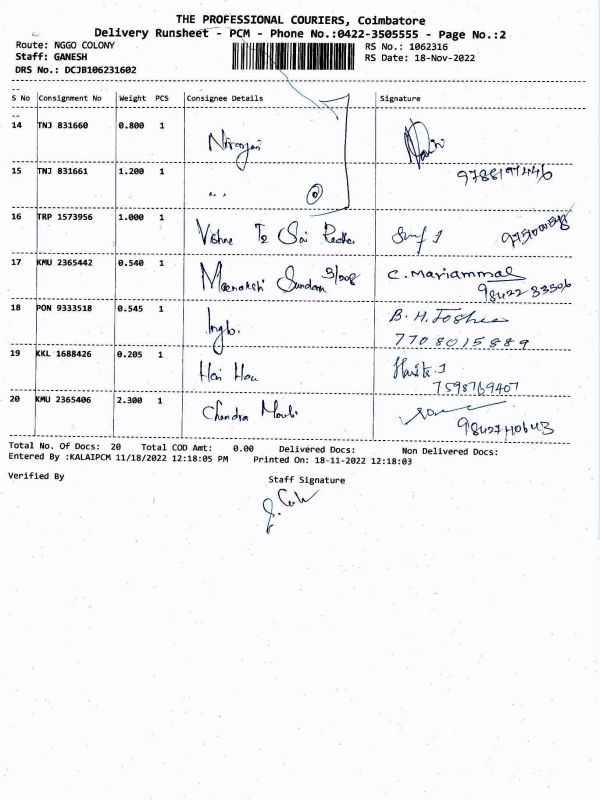 THE PROFESSIONAL COURIERS, Coimbatore
Delivery Runsheet - PCM - Phone No.:0422-3505555 - Page No.:2
Route: NGGO COLONY RS No.: 1062316
Staff: GANESH RS Date: 18-Nov-2022
DRS No.: DCJB106231602
S No Consignment No Weight PCS Consignee Details Signature
14 TNJ 831660 0.800 1
15 TNJ 831661 1.200 1 " "
16 TRP 1573956 1.000 1 Sai
17 KMU 2365442 0.540 1 Meenakshi Sundram C. Mariammal
18 PON 9333518 0.545 1 B. H. Joshua
7708015889
19 KKL 1688426 0.205 1 Hari
7598769407
20 KMU 2365406 2.300 1 Chendra
9842740643
Total No. Of Docs: 20 Total COD Amt: 0.00 Delivered Docs: Non Delivered Docs:
Entered By :KALAIPCM 11/18/2022 12:18:05 PM Printed On: 18-11-2022 12:18:03
Verified By Staff Signature